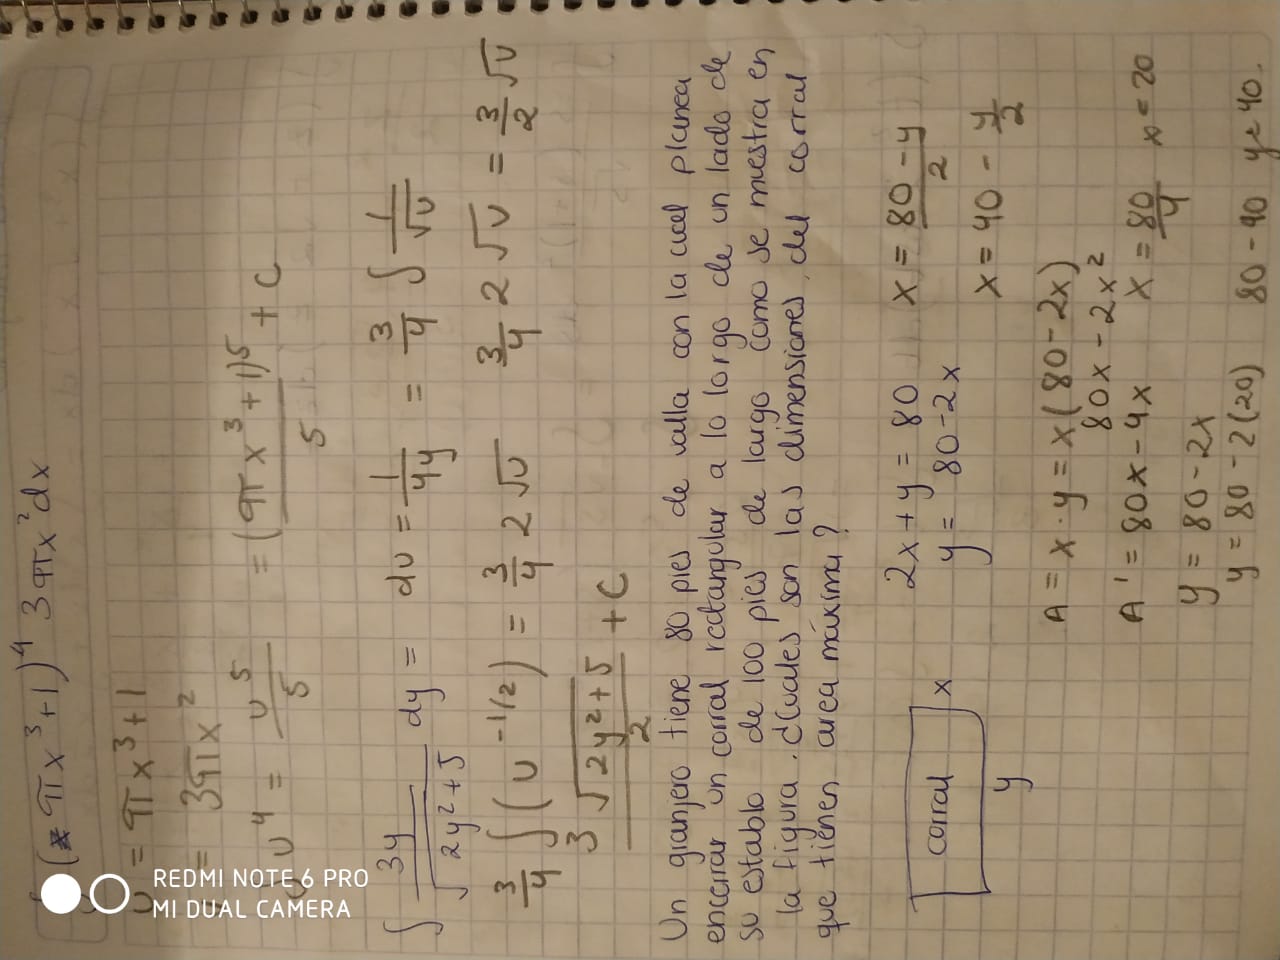 (πx³+1)⁴ 3πx²dx
u = πx³+1
= 3πx²
u⁴ = u⁵/5 = (πx³+1)⁵/5 + C
∫ 3y/√2y²+5 dy = du = 1/4y = 3/4 ∫ 1/√u
3/4 ∫(u^-1/2) = 3/4 2√u 3/4 2√u = 3/2 √u
3√2y²+5/2 + C
Un granjero tiene 80 pies de valla con la cual planea
encerrar un corral rectangular a lo largo de un lado de
su establo de 100 pies de largo como se muestra en
la figura. ¿Cuales son las dimensiones del corral
que tienen area máxima?
corral x
y
2x + y = 80 x = 80-y/2
y = 80-2x x = 40 - y/2
A = x·y = x(80-2x)
80x - 2x²
A' = 80x - 4x x = 80/4 x = 20
y = 80 - 2x
y = 80 - 2(20) 80 - 40 y = 40.
REDMI NOTE 6 PRO
MI DUAL CAMERA